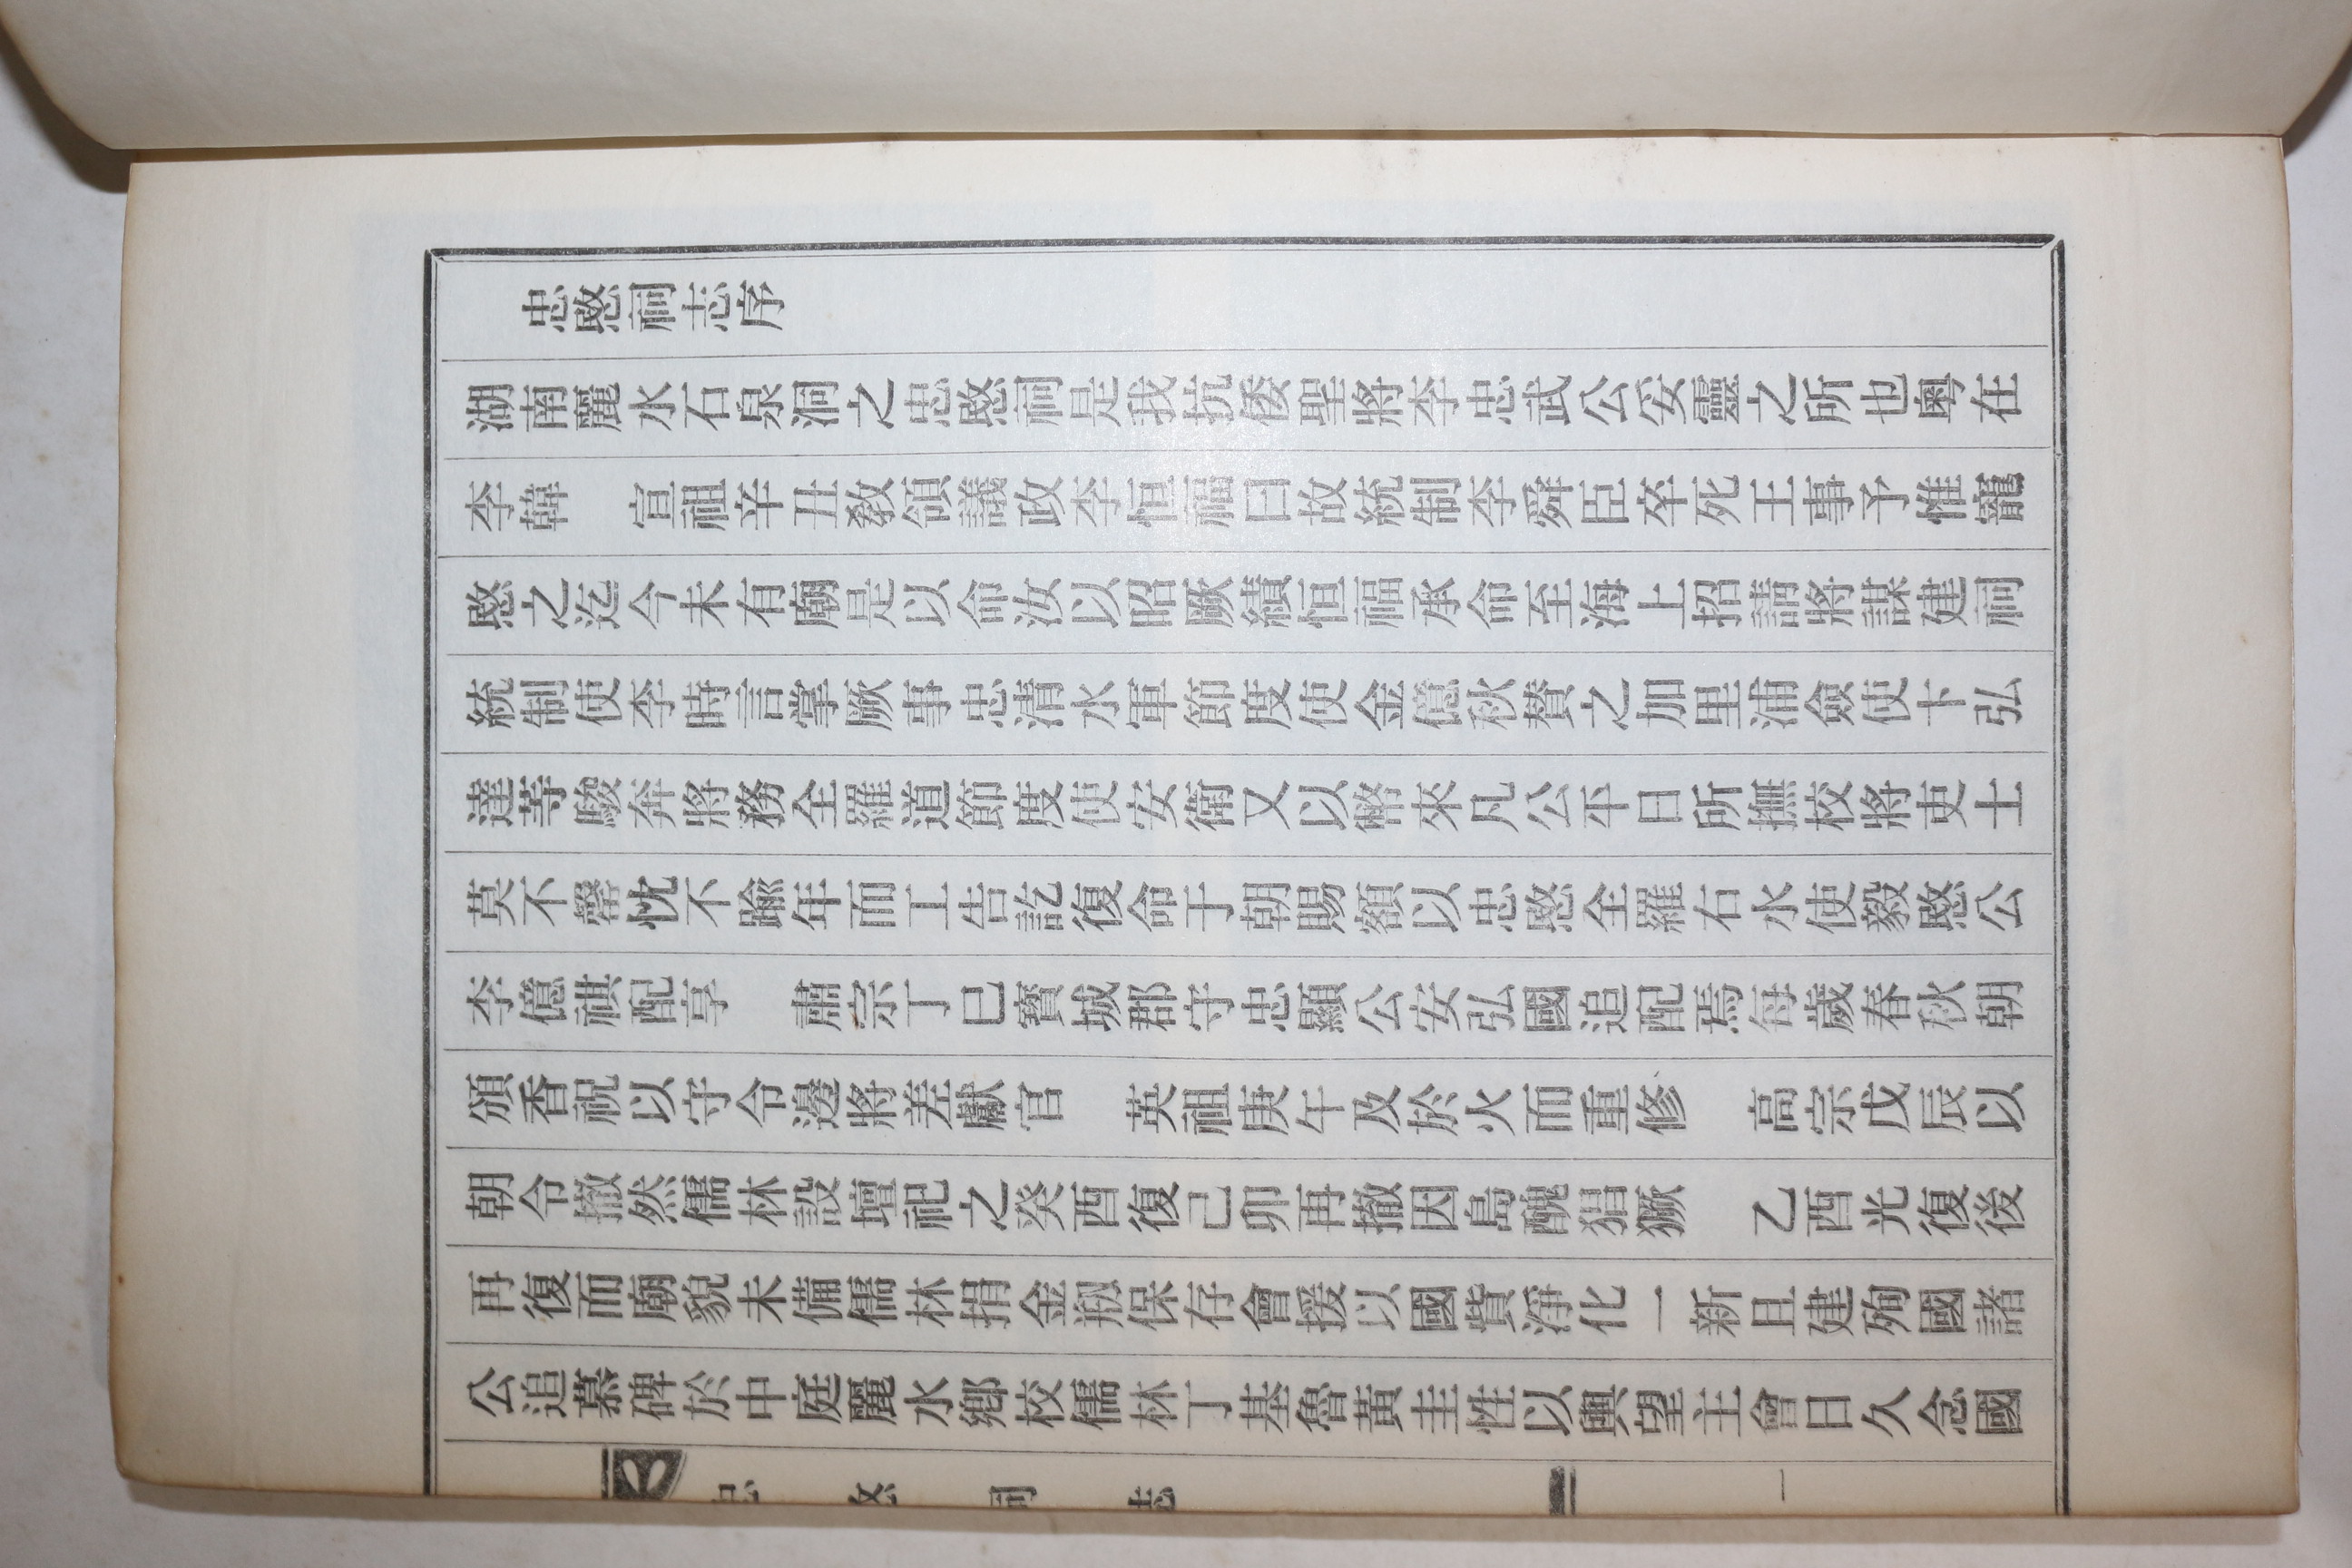 忠愍祠志序
湖南麗水石泉洞之忠愍祠是我抗倭聖將李忠武公妥靈之所也粵在
李韓 宣祖辛丑敎領議政李恒福曰故統制李舜臣卒死王事予惟寵
愍之迄今未有廟是以命汝以昭厥績恒福承命至海上招請將謀建祠
統制使李時言掌厥事忠清水軍節度使金億秋賛之加里浦僉使卞弘
達等駿奔將務全羅道節度使安衛又以幣來凡公平日所撫校將吏士
莫不罄忱不踰年而工告訖復命于朝賜額以忠愍全羅右水使毅愍公
李億祺配享 肅宗丁巳寶城郡守忠顯公安弘國追配焉每歲春秋朝
頒香祝以守令邊將差獻官 英祖庚午及於火而重修 高宗戊辰以
朝令撤然儒林設壇祀之癸酉復己卯再撤因島醜猖獗 乙酉光復後
再復而廟貌未備儒林捐金剏保存會援以國貲淨化一新且建殉國諸
公追慕碑於中庭麗水鄉校儒林丁基魯黃圭性以輿望主會日久念國
忠愍祠誌 一